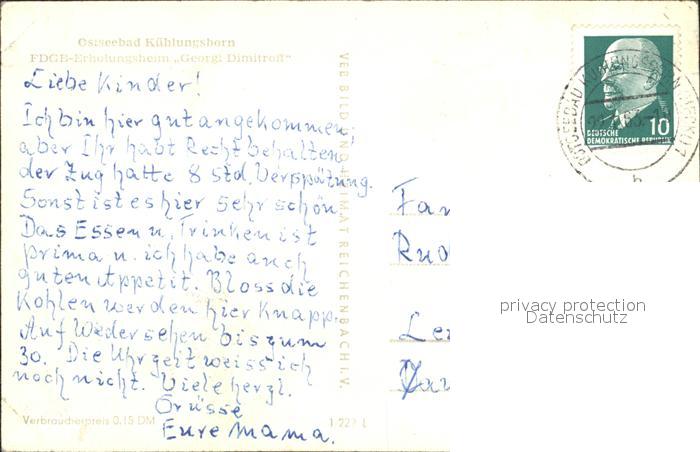 Ostseebad Kühlungsborn
FDGB-Erholungsheim „Georgi Dimitroff"
Liebe Kinder!
Ich bin hier gut angekommen,
aber Ihr habt Recht behalten,
der Zug hatte 8 Std. Verspätung.
Sonst ist es hier sehr schön
Das Essen u. Trinken ist
prima u. ich habe auch
guten Appetit. Bloss die
Kohlen werden hier Knapp.
Auf Wiedersehen bis zum
30. Die Uhrzeit weiss ich
noch nicht. Viele herzl.
Grüsse
Eure Mama.
Verbraucherpreis 0,15 DM
VEB BILD UND HEIMAT REICHENBACH i. V.
10
DEUTSCHE
DEMOKRATISCHE REPUBLIK
OSTSEEBAD KÜHLUNGSBORN
b
Fam
Rud
privacy protection
Datenschutz